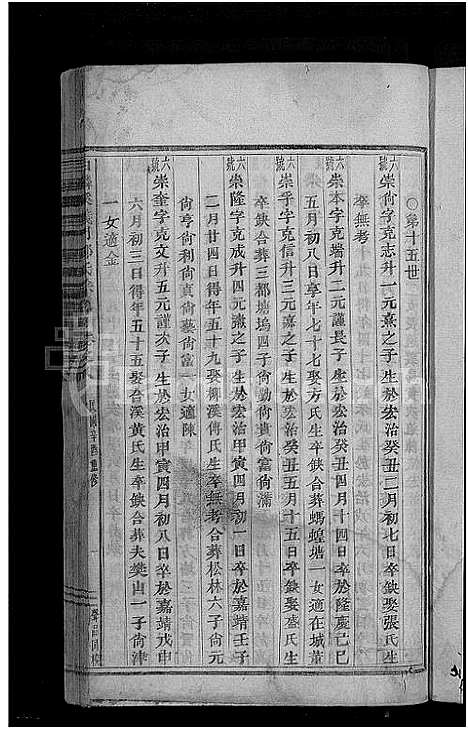 ○第十五世
六號崇尙字克志升一元熹之子生於宏治癸丑二月初七日卒缺娶張氏生
卒無考
六號崇本字克端升二元謹長子生於宏治癸丑四月十四日卒於隆慶己巳
五月初八日享年七十七娶方氏生卒缺合葬螞蝗塘一女適在城董
六號崇孚字克信升三元嘉之子生於宏治癸丑五月十五日卒缺娶盛氏生
卒缺合葬三都塘塢四子尙貴尙富尙滿
六號崇隆字克成升四元燾之子生於宏治甲寅四月初一日卒於嘉靖壬子
二月廿四日得年五十九娶柳溪傅氏生卒無考合葬松林六子尙元
尙亨尙利尙貞尙藝尙富一女適陳
六號崇奎字克文升五元謹次子生於宏治甲寅四月初八日卒於嘉靖戊申
六月初三日得年五十五娶合溪黃氏生卒缺合葬夫樊山一子尙津
一女適金
辛酉重修